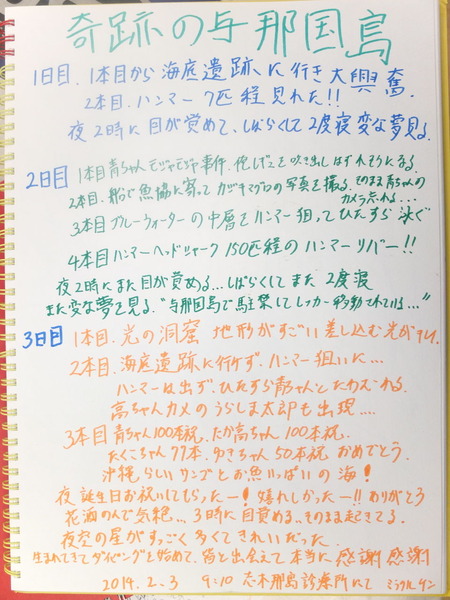 奇跡の与那国島
1日目. 1本目から海底遺跡に行き大興奮.
2本目. ハンマー 7匹程見れた!!
夜2時に目が覚めて、しばらくして2度寝変な夢見る.
2日目 1本目青ちゃんモジャモジャ事件. 俺レギュを吹き出しはずれそうになる.
2本目. 船で魚協に寄ってカジキマグロの写真を撮る. そのまま青ちゃんの
カメラ忘れる...
3本目ブルーウォーターの中層をハンマー狙ってひたすら泳ぐ
4本目ハンマーヘッドシャーク150匹程のハンマーリバー!!
夜2時にまた目が覚める... しばらくしてまた2度寝
また変な夢を見る. "与那国島で駐禁してレッカー移動されている..."
3日目 1本目. 光の洞窟 地形がすごい差し込む光がすごい.
2本目. 海底遺跡に行けず. ハンマー狙いに...
ハンマーは出ず. ひたすら青ちゃんとたわむれる.
高ちゃんカメのうらしま太郎も出現....
3本目青ちゃん100本祝. たか高ちゃん100本祝.
たくこちゃん77本. ゆきちゃん50本祝 おめでとう.
沖縄らしいサンゴとお魚いっぱいの海!
夜 誕生日お祝いしてもらったー! 嬉しかったー!! ありがとう
花酒のんで気絶... 3時に目覚める.. そのまま起きてる.
夜空の星がすっごく多くてきれいだった.
生まれてきてダイビングを始めて. 皆と出会えて本当に感謝感謝
2019. 2. 3 9:10 志木那島診療所にて